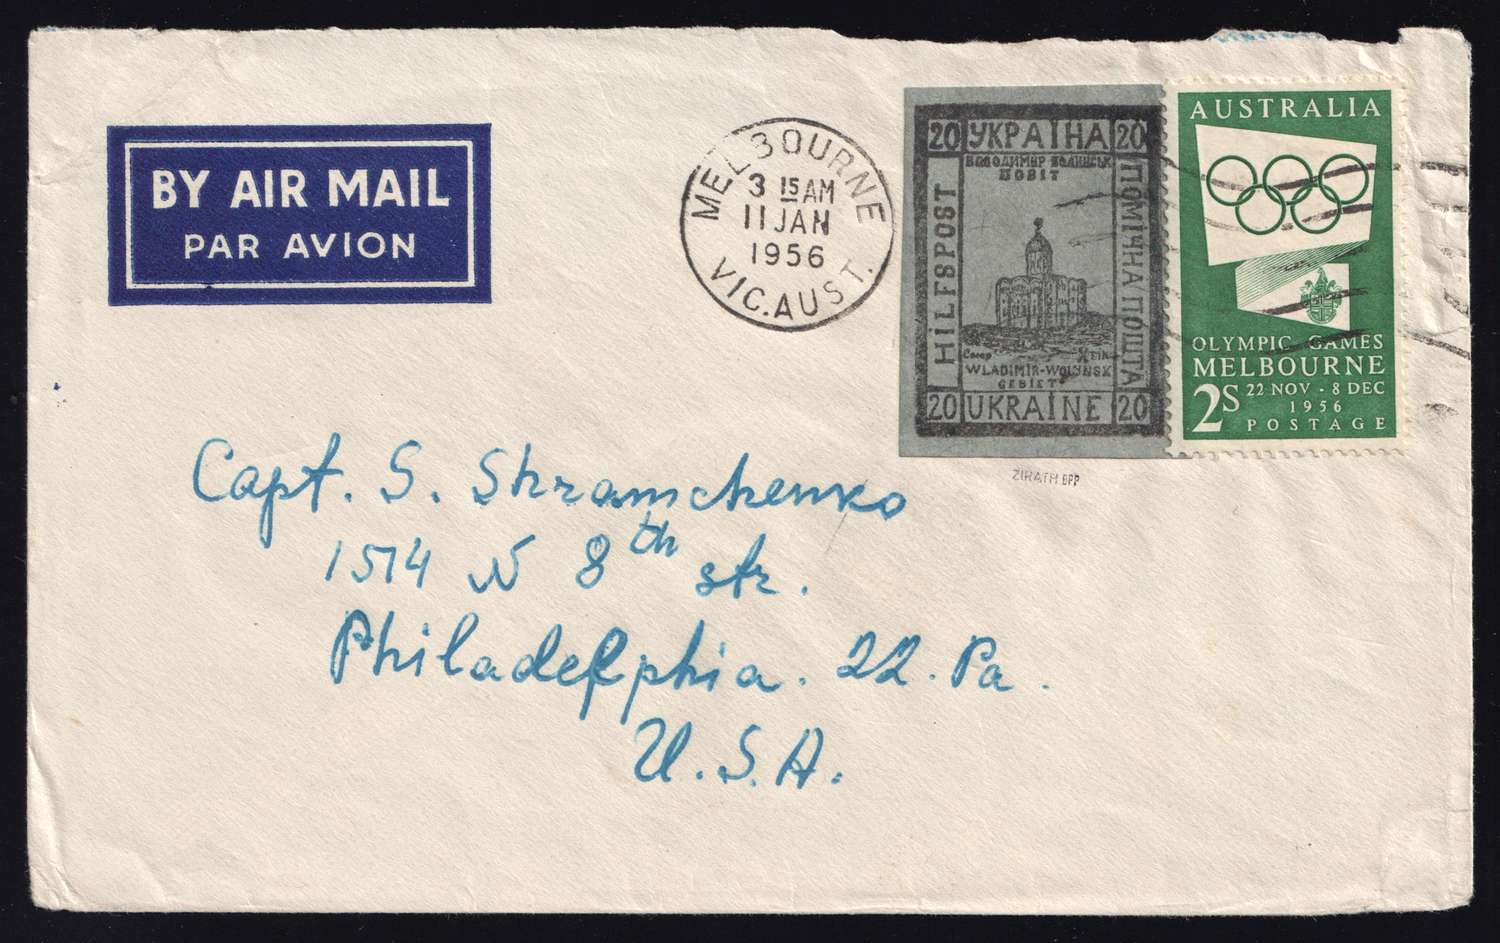 BY AIR MAIL
PAR AVION
MELBOURNE
3 15 AM
11 JAN
1956
VIC. AUST.
20 УКРАЇНА 20
ВОЛОДИМИР ВОЛИНСЬК
ПОВІТ
HILFSPOST
ПОМІЧНА ПОШТА
WLADIMIR-WOLYNSK
GEBIET
20 UKRAINE 20
ZIRATH BPP
AUSTRALIA
OLYMPIC GAMES
MELBOURNE
2S 22 NOV - 8 DEC
1956
POSTAGE
Capt. S. Shramchenko
1514 N 8th str.
Philadelphia. 22. Pa.
U.S.A.